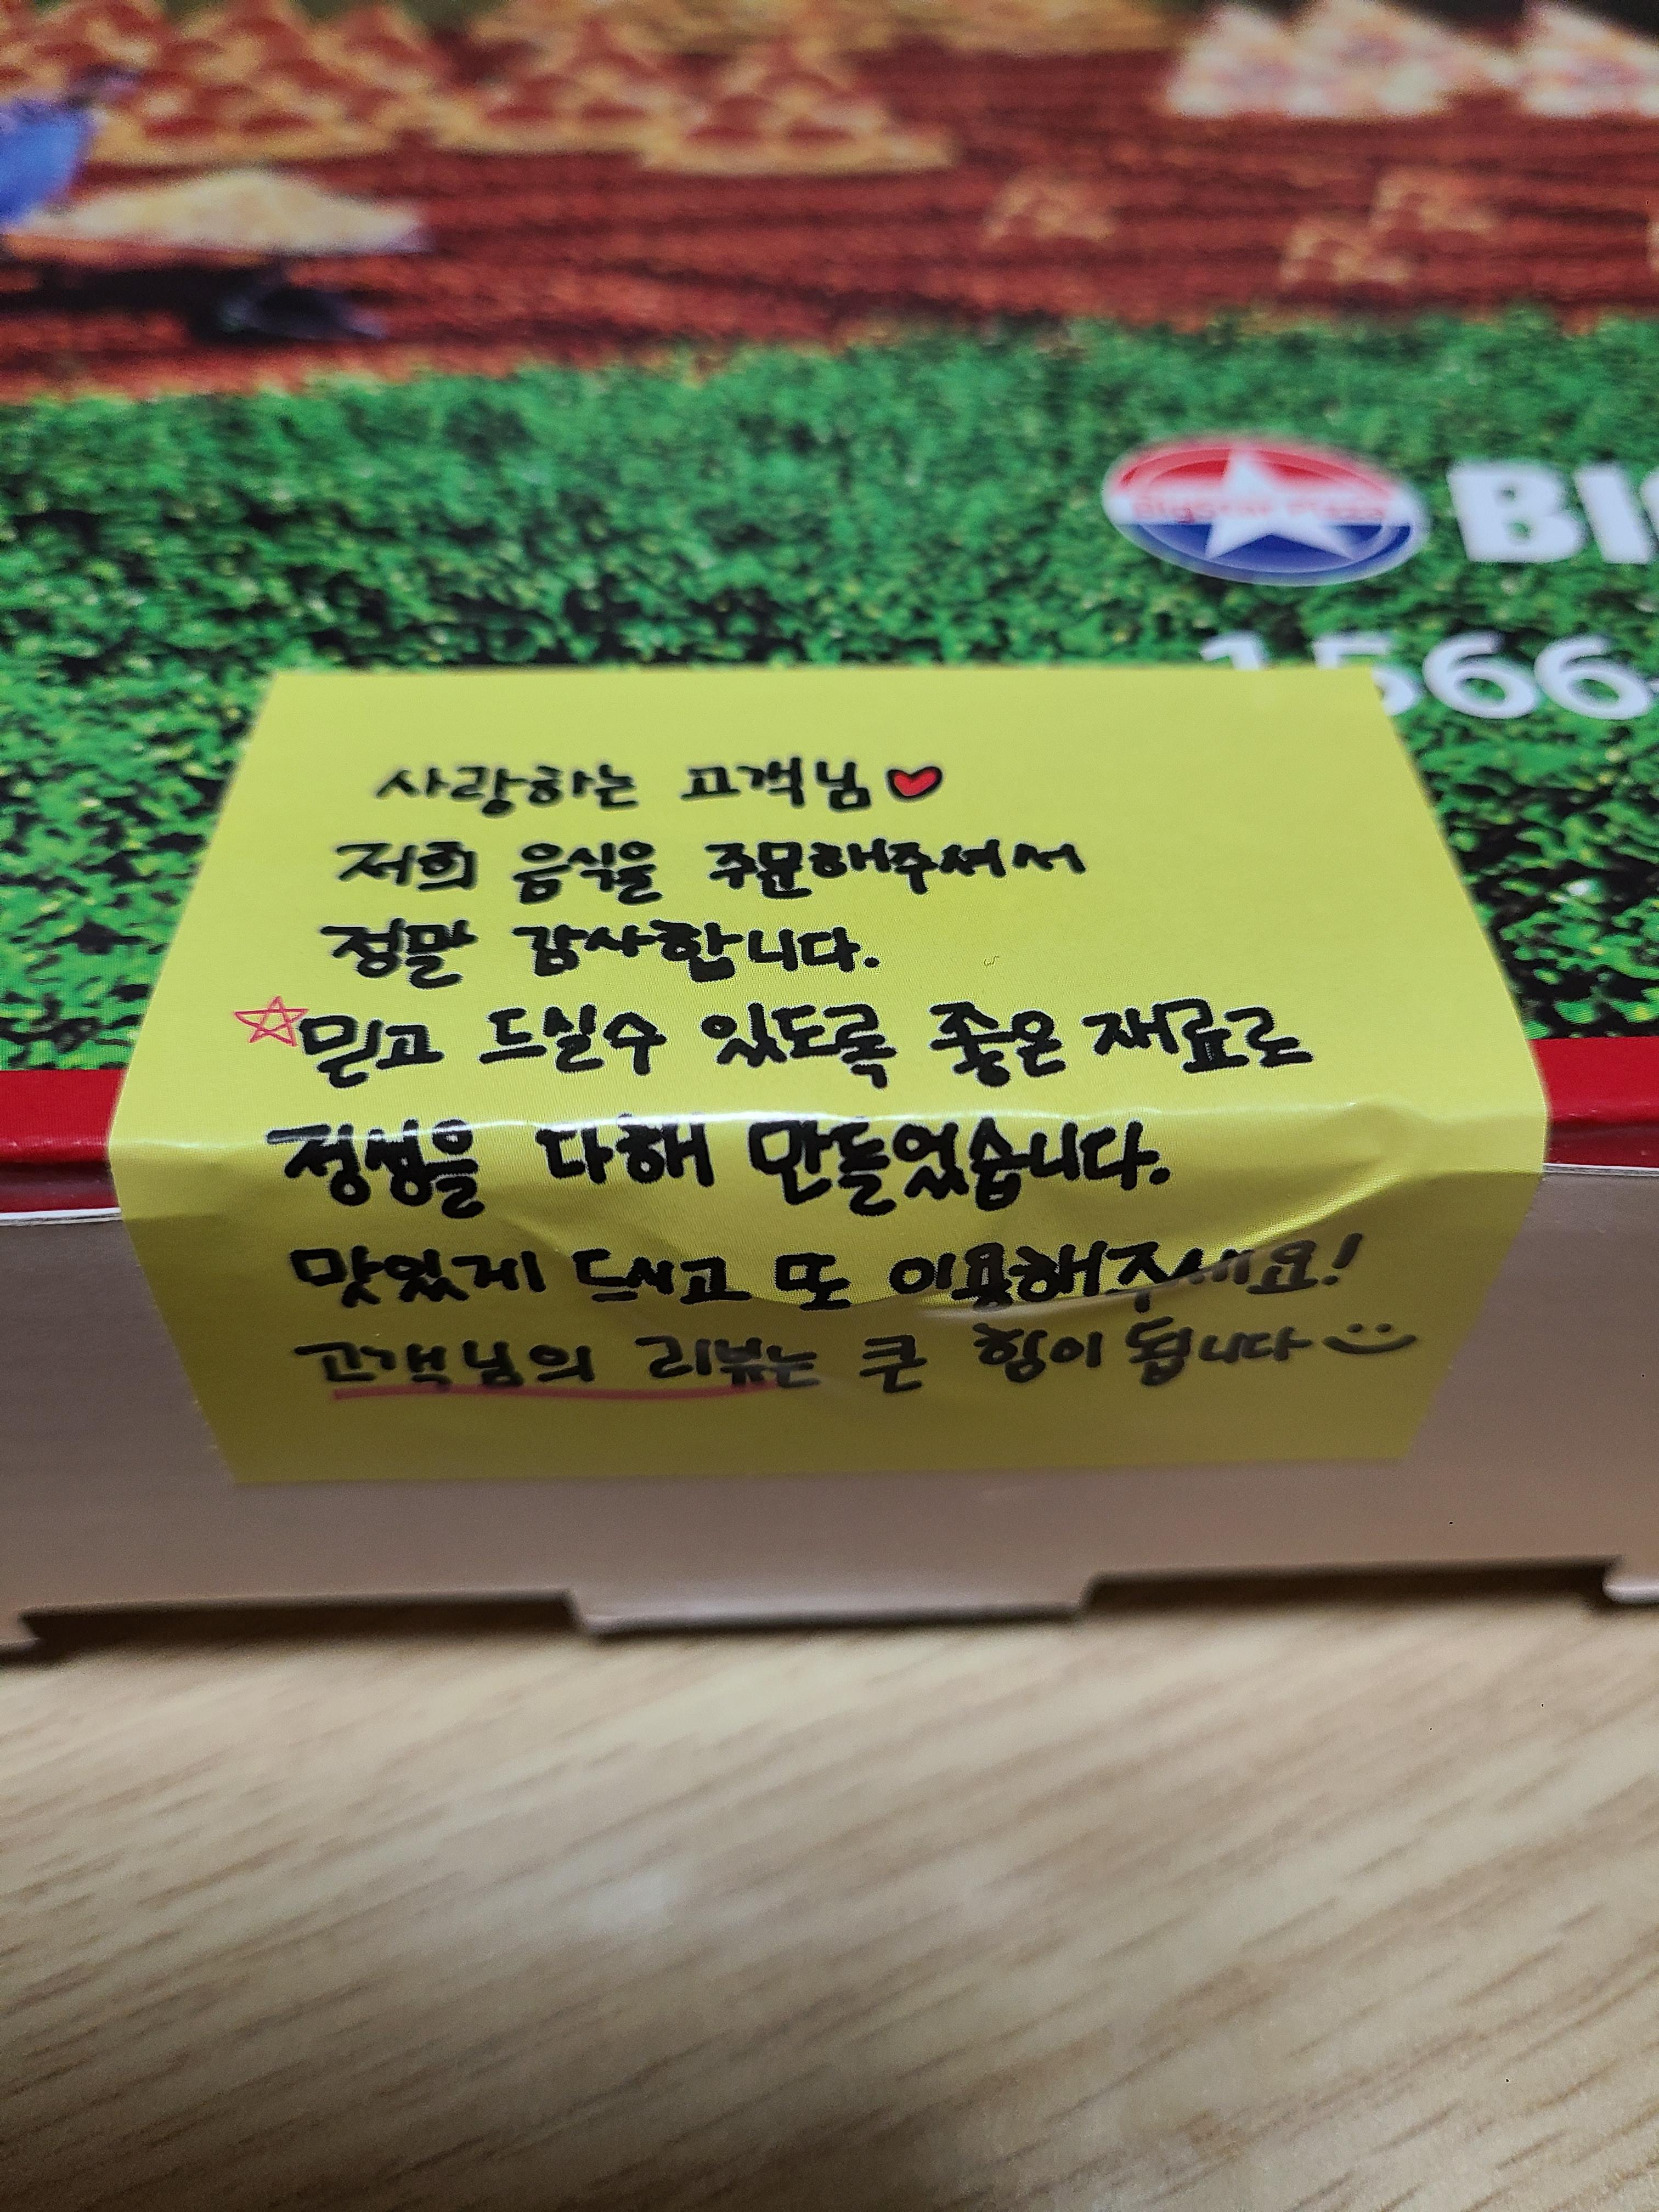 Bigstar Pizza
BIG
1566-
사랑하는 고객님
저희 음식을 주문해주셔서
정말 감사합니다.
믿고 드실수 있도록 좋은 재료로
정성을 다해 만들었습니다.
맛있게 드시고 또 이용해주세요!
고객님의 리뷰는 큰 힘이 됩니다